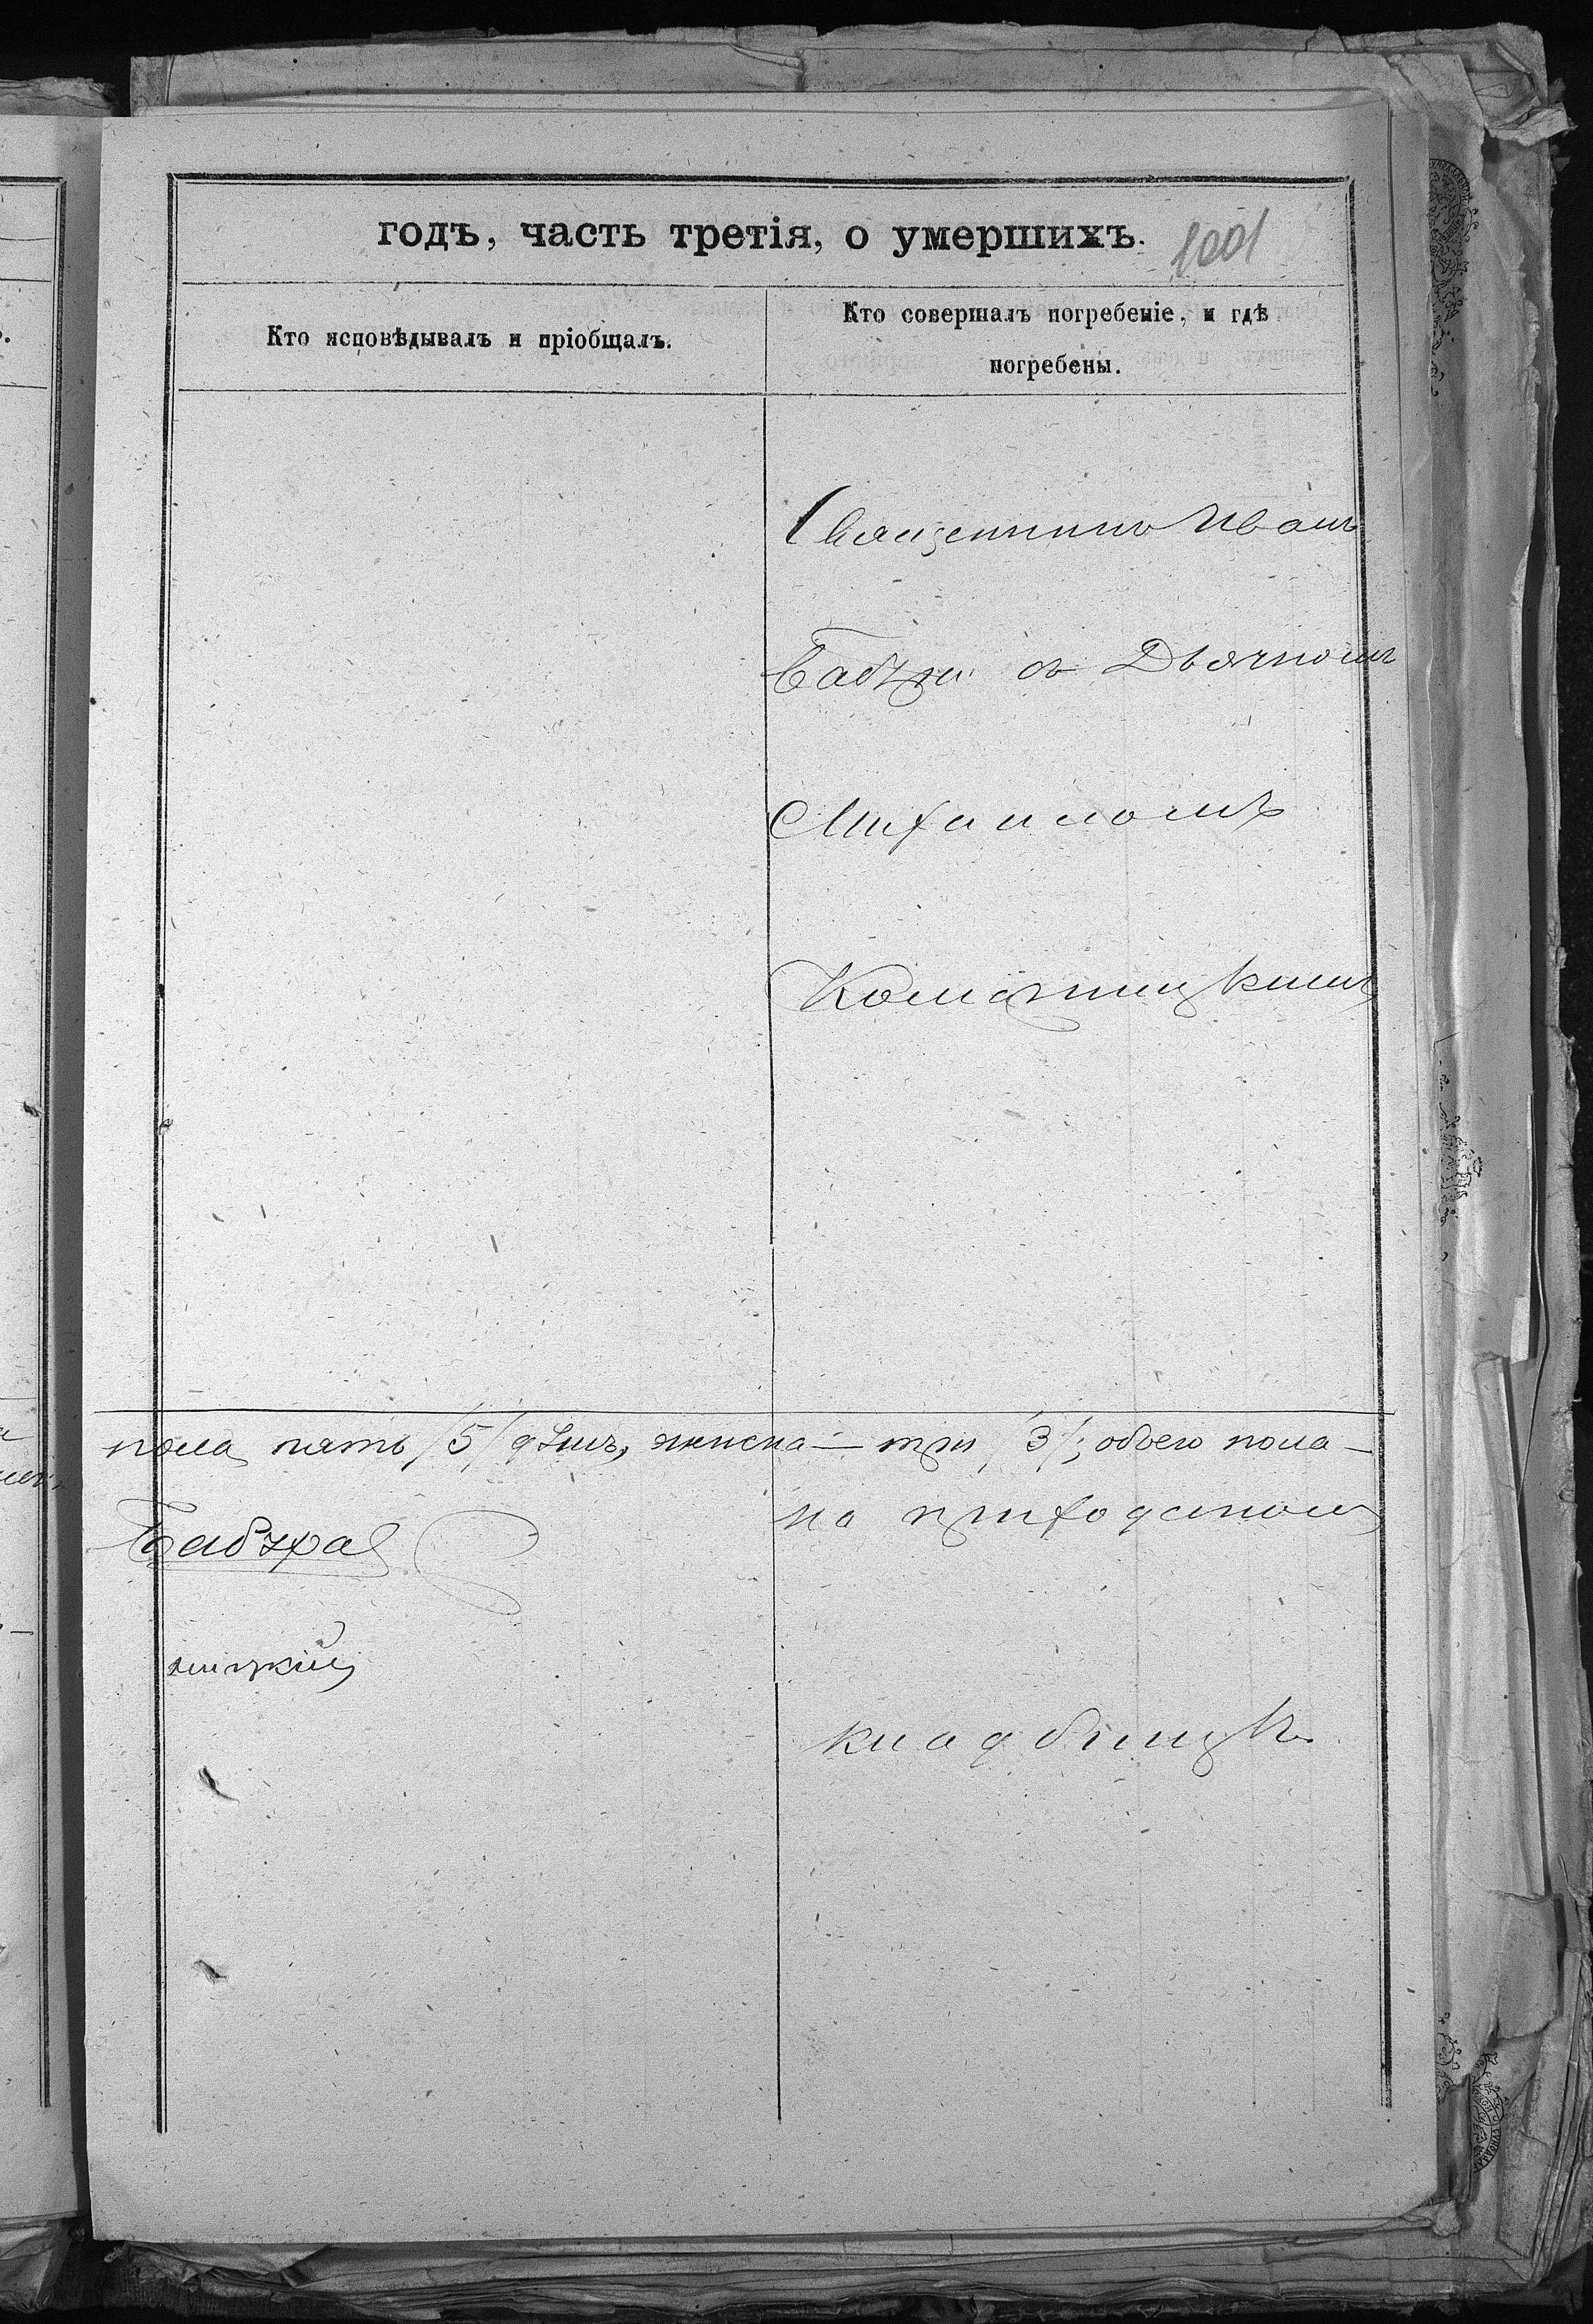 годъ, часть третія, о умершихъ.
1001
Кто исповѣдывалъ и пріобщалъ.
Кто совершалъ погребеніе, и гдѣ
погребены.
Священникъ Иванъ
съ Дьячкомъ
Михаиломъ
пола пять /5/ душъ, женска — три /3/; обоего пола —
на приходскомъ
ницкій
кладбищѣ.